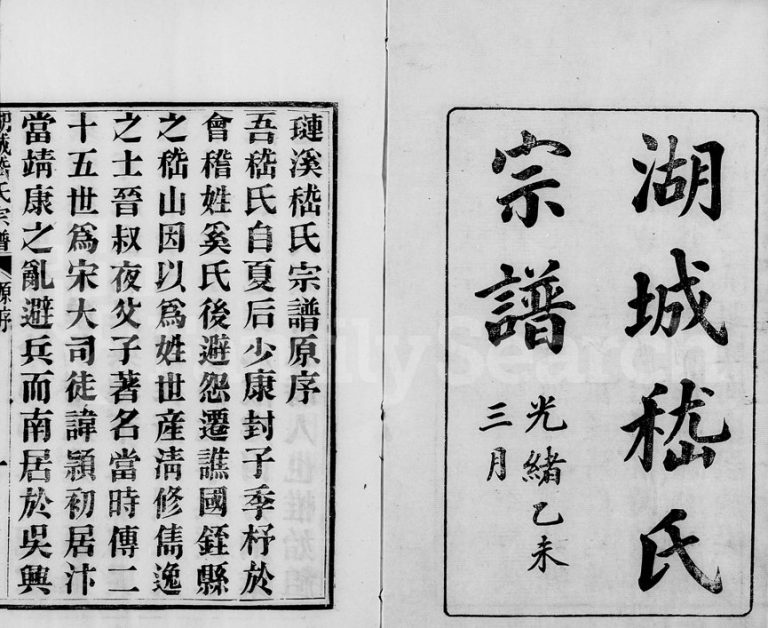 湖城嵇氏
宗譜
光緒乙未
三月
璉溪嵇氏宗譜原序
吾嵇氏自夏后少康封子季杼於
會稽姓奚氏後避怨遷譙國銍縣
之嵇山因以爲姓世産淸修儁逸
之士晉叔夜父子著名當時傳二
十五世爲宋大司徒諱頴初居汴
當靖康之亂避兵而南居於吳興
湖城嵇氏宗譜 原序 一
FamilySearch